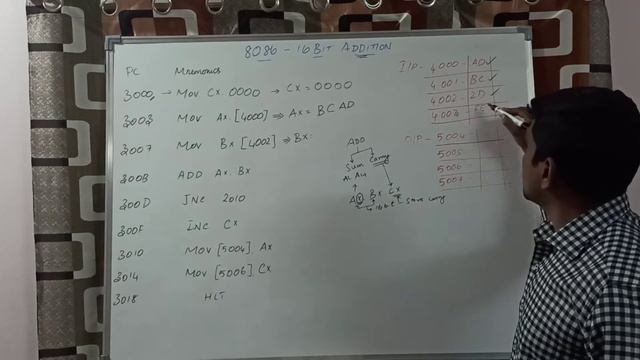 8086 - 16 BIT ADDITION
PC Mnemonics
3000 → MOV CX, 0000 → CX = 0000
3003 MOV AX [4000] ⇒ AX = BC AD
3007 MOV BX [4002] ⇒ BX =
300B ADD AX, BX
300D JNC 2010
300F INC CX
3010 MOV [5004], AX
3014 MOV [5006], CX
3018 HLT
ADD
Sum Carry
AL AH
AX, BX, CX
16 bit Save carry
I/P - 4000 - AD ✓
4001 - BC ✓
4002 - 2D ✓
O/P - 5004
5005
5006
5007